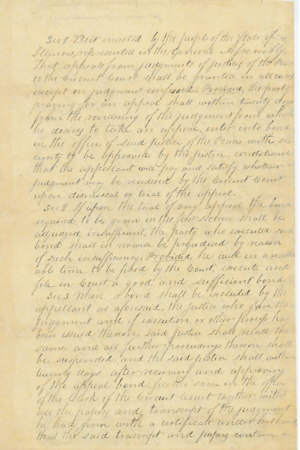 Sec 1 Be it enacted by the people of the State of
Illinois, represented in the General Assembly
That appeals from judgments of justices of the Peace
to the Circuit Court shall be granted in all cases
except on judgment confessed. Provided, the party
praying for an appeal shall within twenty days
from the rendering of the judgment from which
he desires to take an appeal, enter into bond
in the office of said justice of the Peace with sec
urity to be approved by the justice, conditioned
that the appellant will pay and satisfy whatever
judgment may be rendered by the Circuit Court
upon dismissal or trial of the appeal.
Sec 2 If upon the trial of any appeal the bond
required to be given in the first section shall be
adjudged insufficient the party who executed such
bond shall in no wise be prejudiced by reason
of such insufficiency. Provided, he will in a reason
able time to be fixed by the Court, execute and
file in Court a good and sufficient bond.
Sec 3. When a bond shall be executed by the
appellant as aforesaid, the justice who gave the
judgment and if execution or other process has
been issued thereon said justice shall recall the
same and all further proceedings thereon shall
be suspended, and the said justice shall within
twenty days after receiving and approving
of the appeal bond, file the same in the office
of the Clerk of the Circuit Court together with
all the papers and transcript of the judgment
he had given with a certificate under his hand
that the said transcript and papers contain a